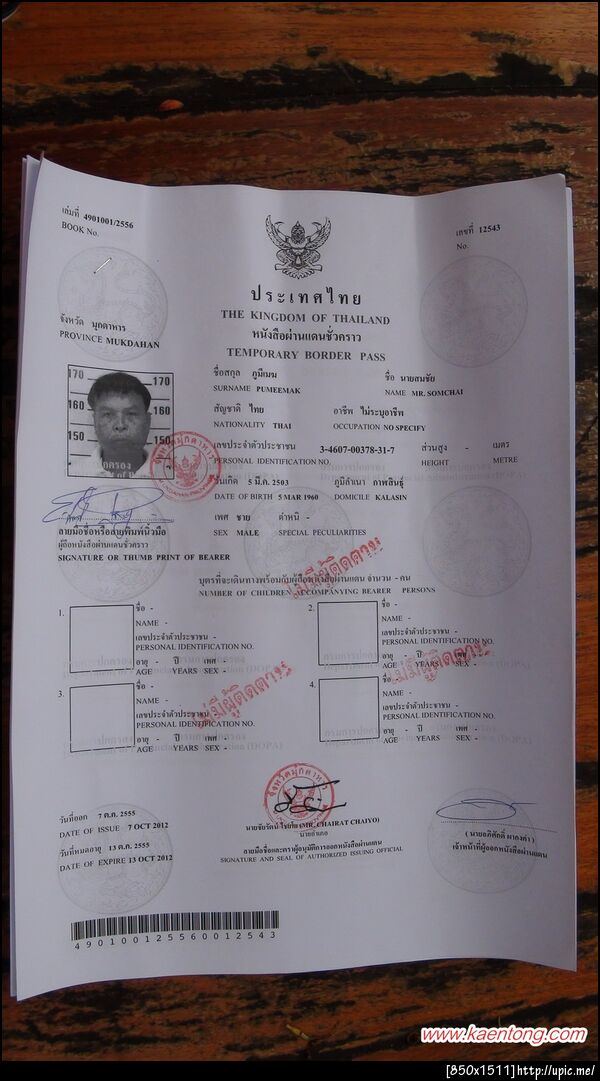 เล่มที่ 4901001/2556
BOOK No.
เลขที่ 12543
No.
ประเทศไทย
THE KINGDOM OF THAILAND
หนังสือผ่านแดนชั่วคราว
TEMPORARY BORDER PASS
จังหวัด มุกดาหาร
PROVINCE MUKDAHAN
ชื่อสกุล ภูมีเมฆ ชื่อ นายสมชัย
SURNAME PUMEEMAK NAME MR. SOMCHAI
สัญชาติ ไทย อาชีพ ไม่ระบุอาชีพ
NATIONALITY THAI OCCUPATION NO SPECIFY
เลขประจำตัวประชาชน 3-4607-00378-31-7 ส่วนสูง - เมตร
PERSONAL IDENTIFICATION NO. HEIGHT METRE
วันเกิด 5 มี.ค. 2503 ภูมิลำเนา กาฬสินธุ์
DATE OF BIRTH 5 MAR 1960 DOMICILE KALASIN
เพศ ชาย ตำหนิ -
SEX MALE SPECIAL PECULIARITIES
170 170
160 160
150 150
จังหวัดมุกดาหาร
ลายมือชื่อหรือลายพิมพ์นิ้วมือ
ผู้ถือหนังสือผ่านแดนชั่วคราว
SIGNATURE OR THUMB PRINT OF BEARER
ไม่มีผู้ติดตาม
บุตรที่จะเดินทางพร้อมกับผู้ถือหนังสือผ่านแดน จำนวน - คน
NUMBER OF CHILDREN ACCOMPANYING BEARER PERSONS
1. ชื่อ -
NAME -
เลขประจำตัวประชาชน -
PERSONAL IDENTIFICATION NO.
อายุ - ปี เพศ -
AGE YEARS SEX -
2. ชื่อ -
NAME -
เลขประจำตัวประชาชน -
PERSONAL IDENTIFICATION NO.
อายุ - ปี เพศ -
AGE YEARS SEX -
3. ชื่อ -
NAME -
เลขประจำตัวประชาชน -
PERSONAL IDENTIFICATION NO.
อายุ - ปี เพศ -
AGE YEARS SEX -
ไม่มีผู้ติดตาม
4. ชื่อ -
NAME -
เลขประจำตัวประชาชน -
PERSONAL IDENTIFICATION NO.
อายุ - ปี เพศ -
AGE YEARS SEX -
ไม่มีผู้ติดตาม
จังหวัดมุกดาหาร
วันที่ออก 7 ต.ค. 2555
DATE OF ISSUE 7 OCT 2012
วันที่หมดอายุ 13 ต.ค. 2555
DATE OF EXPIRE 13 OCT 2012
นายชัยรัตน์ ไชยโย (MR. CHAIRAT CHAIYO)
นายอำเภอ
ลายมือชื่อและตราผู้อนุมัติการออกหนังสือผ่านแดน
SIGNATURE AND SEAL OF AUTHORIZED ISSUING OFFICIAL
เจ้าหน้าที่ผู้ออกหนังสือผ่านแดน
490100125560012543
www.kaentong.com
[850x1511]http://upic.me/